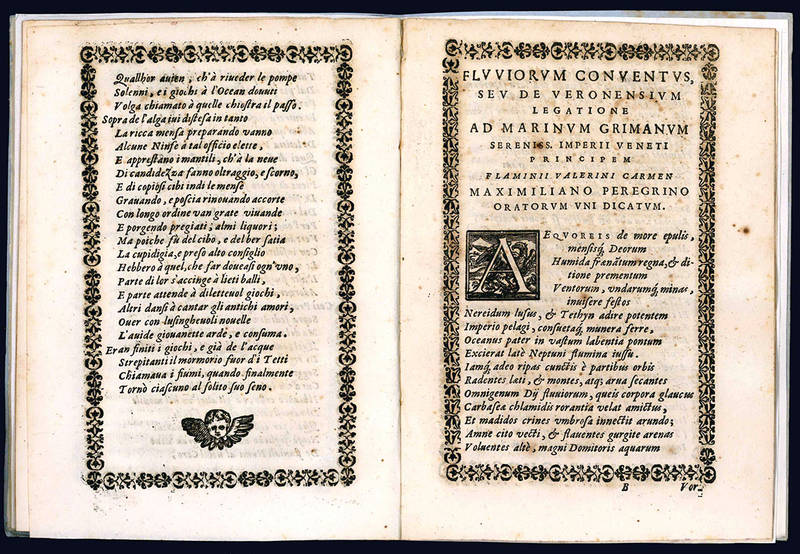 Quallhor auien, ch'à riueder le pompe
Solenni, e i giochi à l'Ocean douuti
Volga chiamato à quelle chiostra il passo.
Sopra de l'alga iui distesa in tanto
La ricca mensa preparando vanno
Alcune Ninfe à tal officio elette,
E apprestano i mantili, ch'à la neue
Di candidezza fanno oltraggio, e scorno,
E di copiosi cibi indi le mense
Grauando, e poscia rinouando accorte
Con longo ordine van grate viuande
E porgendo pregiati, almi liquori;
Ma poiche fù del cibo, e del ber satia
La cupidigia, e preso alto consiglio
Hebbero à quel, che far doueasi ogn'vno,
Parte di lor s'accinge à lieti balli,
E parte attende à diletteuol giochi,
Altri dansi à cantar gli antichi amori,
Ouer con lusingheuoli nouelle
L'auide giouanette arde, e consuma.
Eran finiti i giochi, e già de l'acque
Strepitanti il mormorio fuor d'i Tetti
Chiamaua i fiumi, quando finalmente
Tornò ciascuno al solito suo seno.
FLVVIORVM CONVENTVS,
SEV DE VERONENSIVM
LEGATIONE
AD MARINVM GRIMANVM
SERENISS. IMPERII VENETI
PRINCIPEM
FLAMINII VALERINI CARMEN
MAXIMILIANO PEREGRINO
ORATORVM VNI DICATVM.
AEQVOREIS de more epulis,
mensisq́; Deorum
Humida franctum regna, & di-
tione prementum
Ventorum, vndarumq́; minas,
inuisere festos
Nereidum lusus, & Tethyn adire potentem
Imperio pelagi, consuetaq́; munera ferre,
Oceanus pater in vastum labentia pontum
Excierat latè Neptuni flumina iussu.
Iamq́; adeo ripas cunctis è partibus orbis
Radentes lati, & montes, atq; arua secantes
Omnigenum Dÿ fluuiorum, queis corpora glaucus
Carbasea chlamidis rorantia velat amictus,
Et madidos crines vmbrosa innectit arundo;
Amne cito vecti, & flauentes gurgite arenas
Voluentes altè, magni Domitoris aquarum
B Vor-